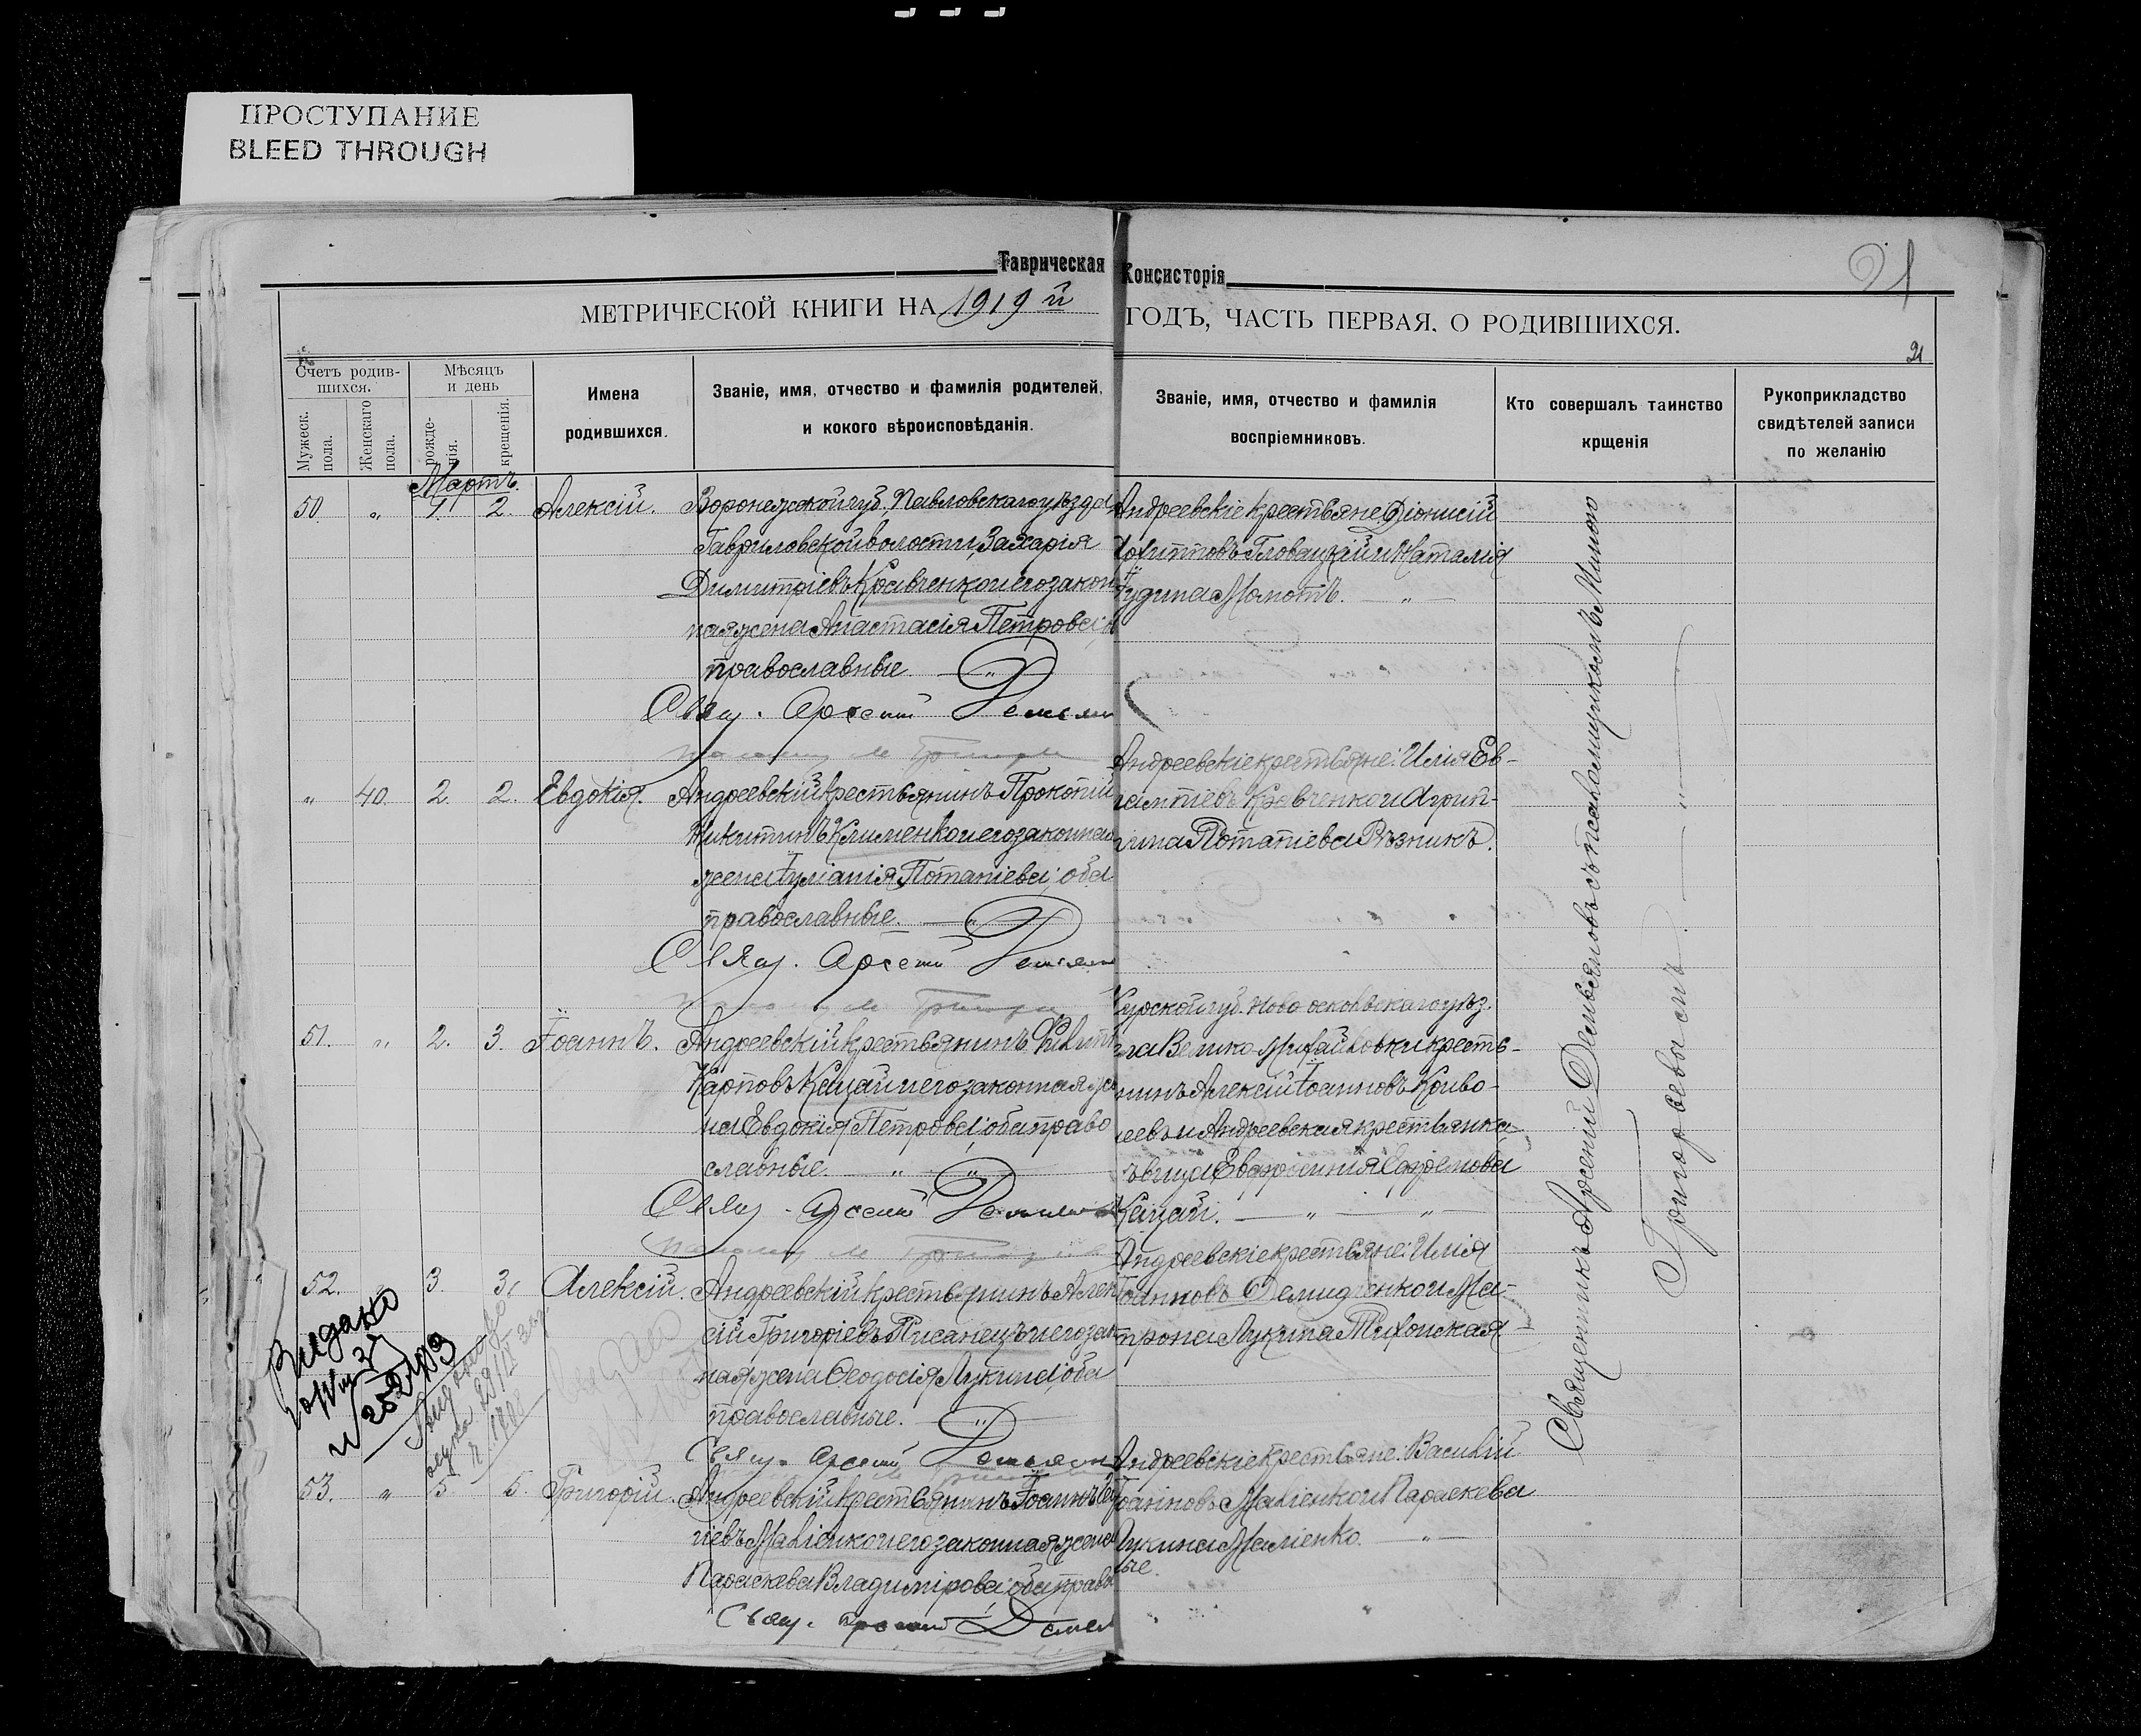 ПРОСТУПАНИЕ
BLEED THROUGH
Таврическая Консисторія
21
МЕТРИЧЕСКОЙ КНИГИ НА 1919й ГОДЪ, ЧАСТЬ ПЕРВАЯ. О РОДИВШИХСЯ.
21
Счетъ родив-
шихся.
Мужеск.
пола.
Женскаго
пола.
Мѣсяцъ
и день
рожде-
нія.
крещенія.
Имена
родившихся.
Званіе, имя, отчество и фамилія родителей,
и кокого вѣроисповѣданія.
Званіе, имя, отчество и фамилія
воспріемниковъ.
Кто совершалъ таинство
крщенія
Рукоприкладство
свидѣтелей записи
по желанію
Мартъ.
50. " 1. 2. Алексій.
Воронежской губ., Павловскаго уѣзда,
Гавриловской волости, Захарія
Димитріевъ Кравченко и его закон
ная жена Анастасія Петровa,
православные. "
Свящ. Арсеній
Андреевскіе крестьяне: Діонисій
Головацкій и Наталія
Мамотъ. "
" 40. 2. 2. Евдокія.
Андреевскій крестьянинъ Прокопій
Никитинъ Клименко и его законная
жена Іуліанія Потапіева; оба
православные. "
Свящ. Арсеній
Андреевскіе крестьяне: Илія Ев-
Кравченко и Агрип-
пина Потапіева Рѣзникъ.
51. " 2. 3. Іоаннъ.
Андреевскій крестьянинъ Филипп
Карповъ Кацай и его законная же
на Евдокія Петрова; оба право
славные. " "
Свящ. Арсеній
Курской губ. Ново оскольскаго уѣз.
Велико-Михайловки кресть-
нинъ Алексій Іоанновъ Криво-
шеевъ и Андреевская крестьянка
дѣвица Евфросинія Ефремова
Кацай. " "
52. 3. 3. Алексій.
Андреевскій крестьянинъ Алек
сій Григоріевъ Писанецъ и его зак
ная жена Ѳеодосія Лукина; оба
православные. "
Свящ. Арсеній
Андреевскіе крестьяне: Илія
Іоанновъ Демидченко и Ма-
трона Лукина Тихонская
Видано
53. " 5 5. Григорій.
Андреевскій крестьянинъ Іоаннъ
Маліенко и его законная жена
Параскева Владимірова; оба право
ные.
Свящ. Арсеній
Андреевскіе крестьяне: Василій
Іоанновъ Маліенко и Параскева
Лукина Маліенко. "
Священникъ Арсеній Демьяновъ съ псаломщикомъ Миною
Григорьевымъ. "